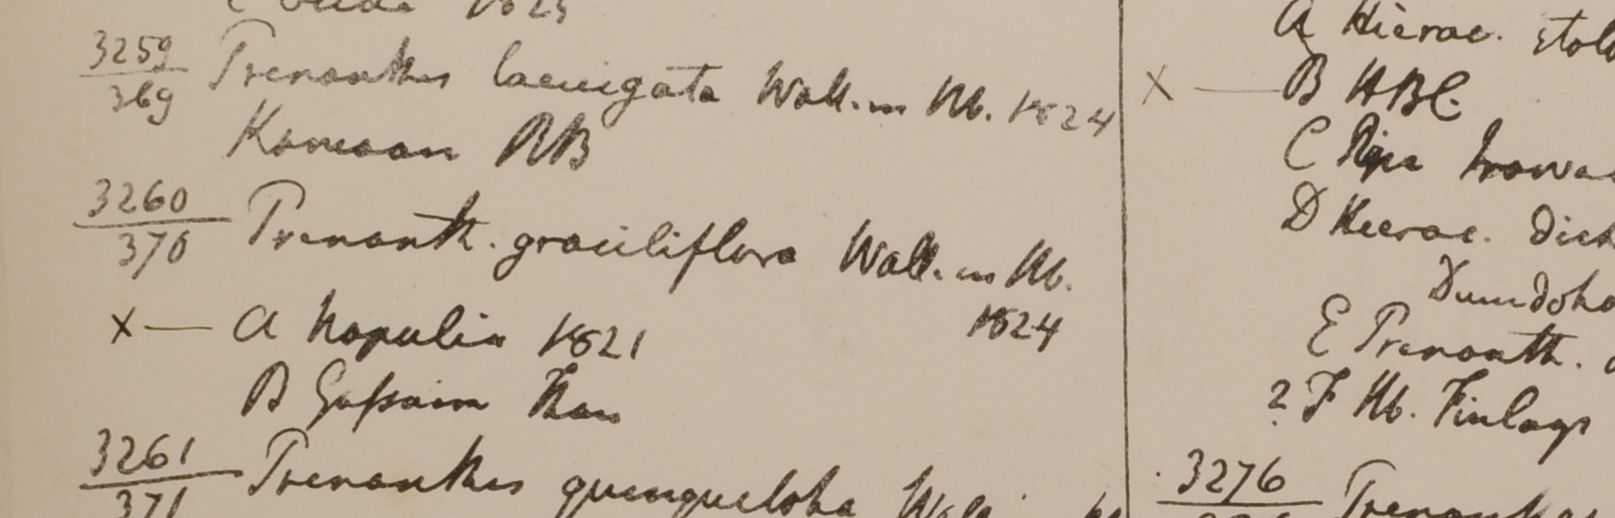 1825
3259 Prenanthes laevigata Wall. in Hb. 1824
369
Kamaon RB
3260
370 Prenanth. graciliflora Wall. in Hb.
1824
x — A Napalia 1821
B Gossain Than
3261 Prenanthes quinqueloba Wall.
371
A Hierac.
x — B HBC.
C Ripa
D Hierac. Dich
E Prenanth.
? F Hb. Finlays
3276